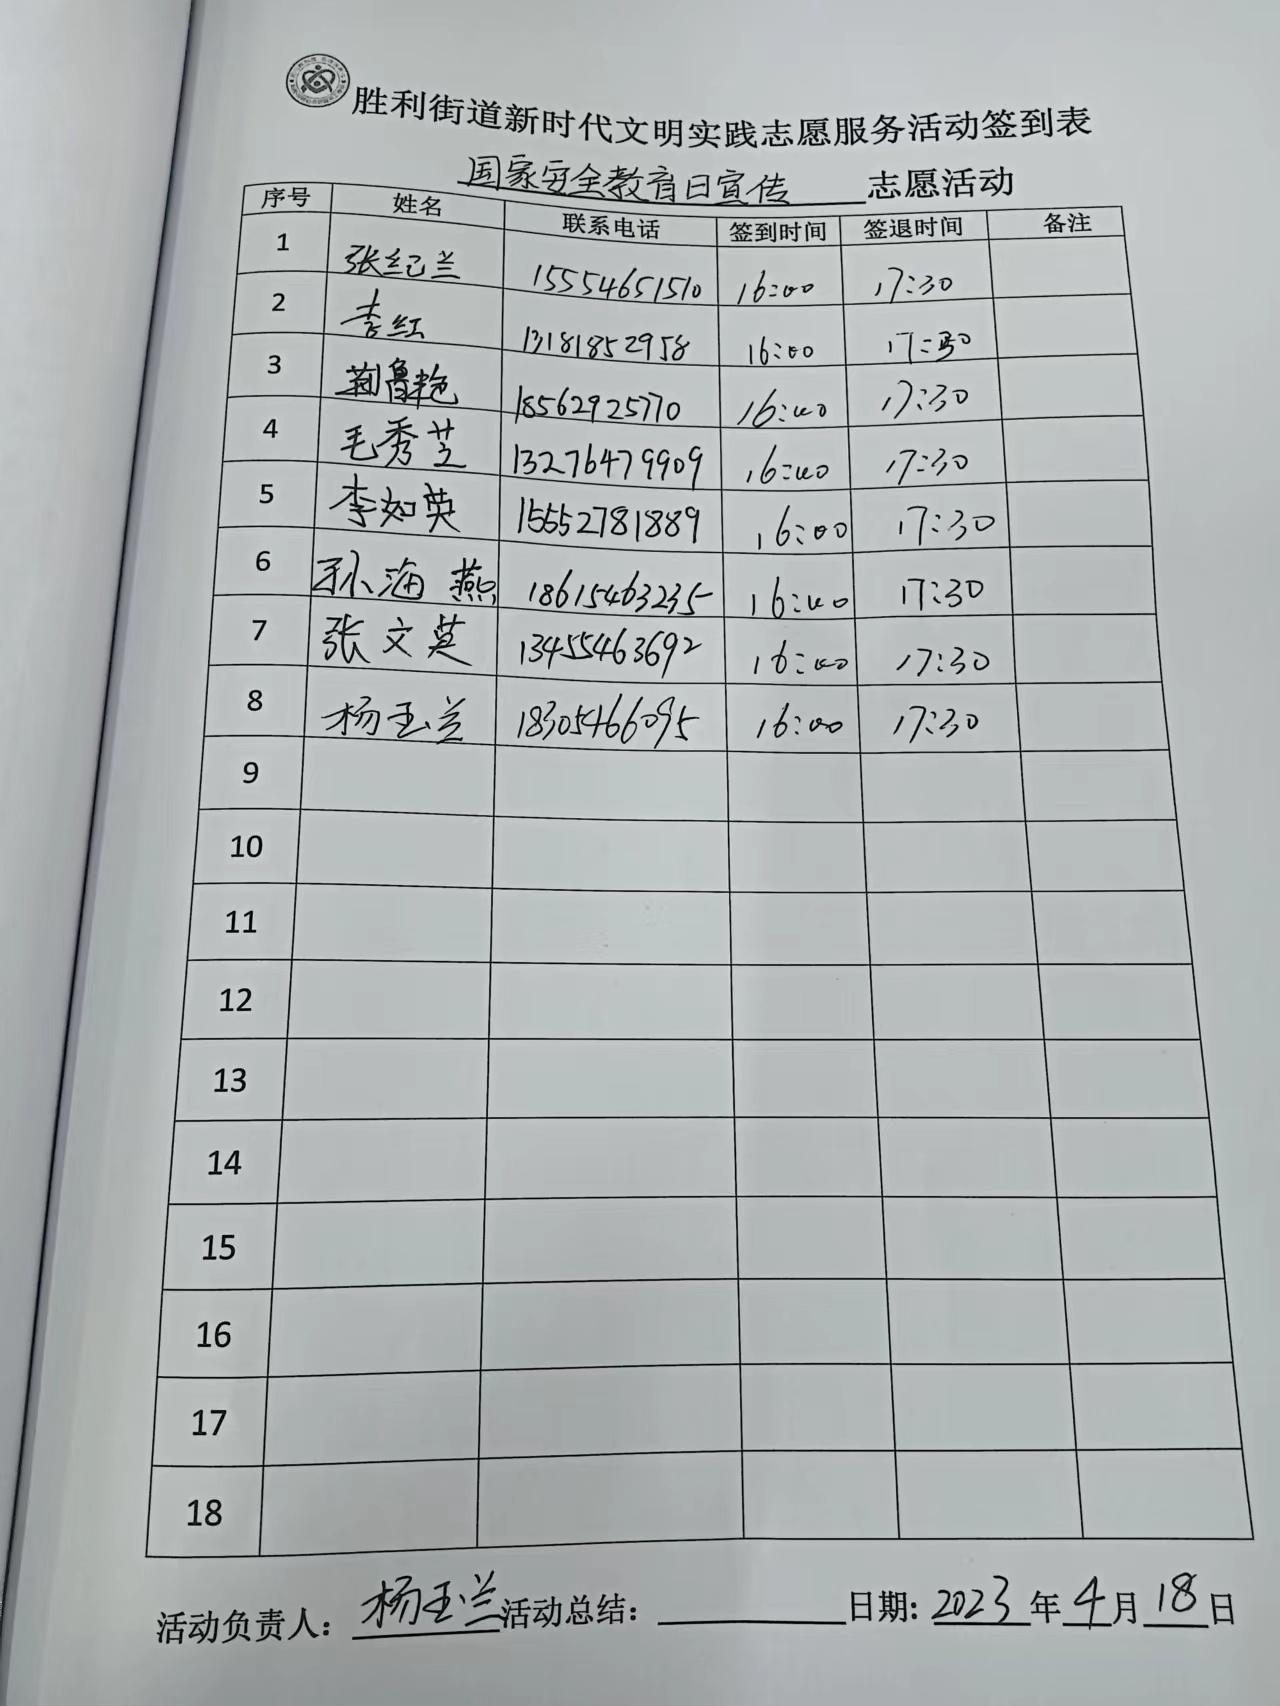 胜利街道新时代文明实践志愿服务活动签到表
国家安全教育日宣传 志愿活动
序号 姓名 联系电话 签到时间 签退时间 备注
1 张纪兰 15554651510 16:00 17:30
2 李红 13181852958 16:00 17:30
3 荆鲁艳 18562925770 16:00 17:30
4 毛秀芝 13276479909 16:00 17:30
5 李如英 15552781889 16:00 17:30
6 孙海燕 18615463235 16:00 17:30
7 张文英 13455463692 16:00 17:30
8 杨玉兰 18305466095 16:00 17:30
9
10
11
12
13
14
15
16
17
18
活动负责人: 杨玉兰 活动总结: 日期: 2023 年 4 月 18 日